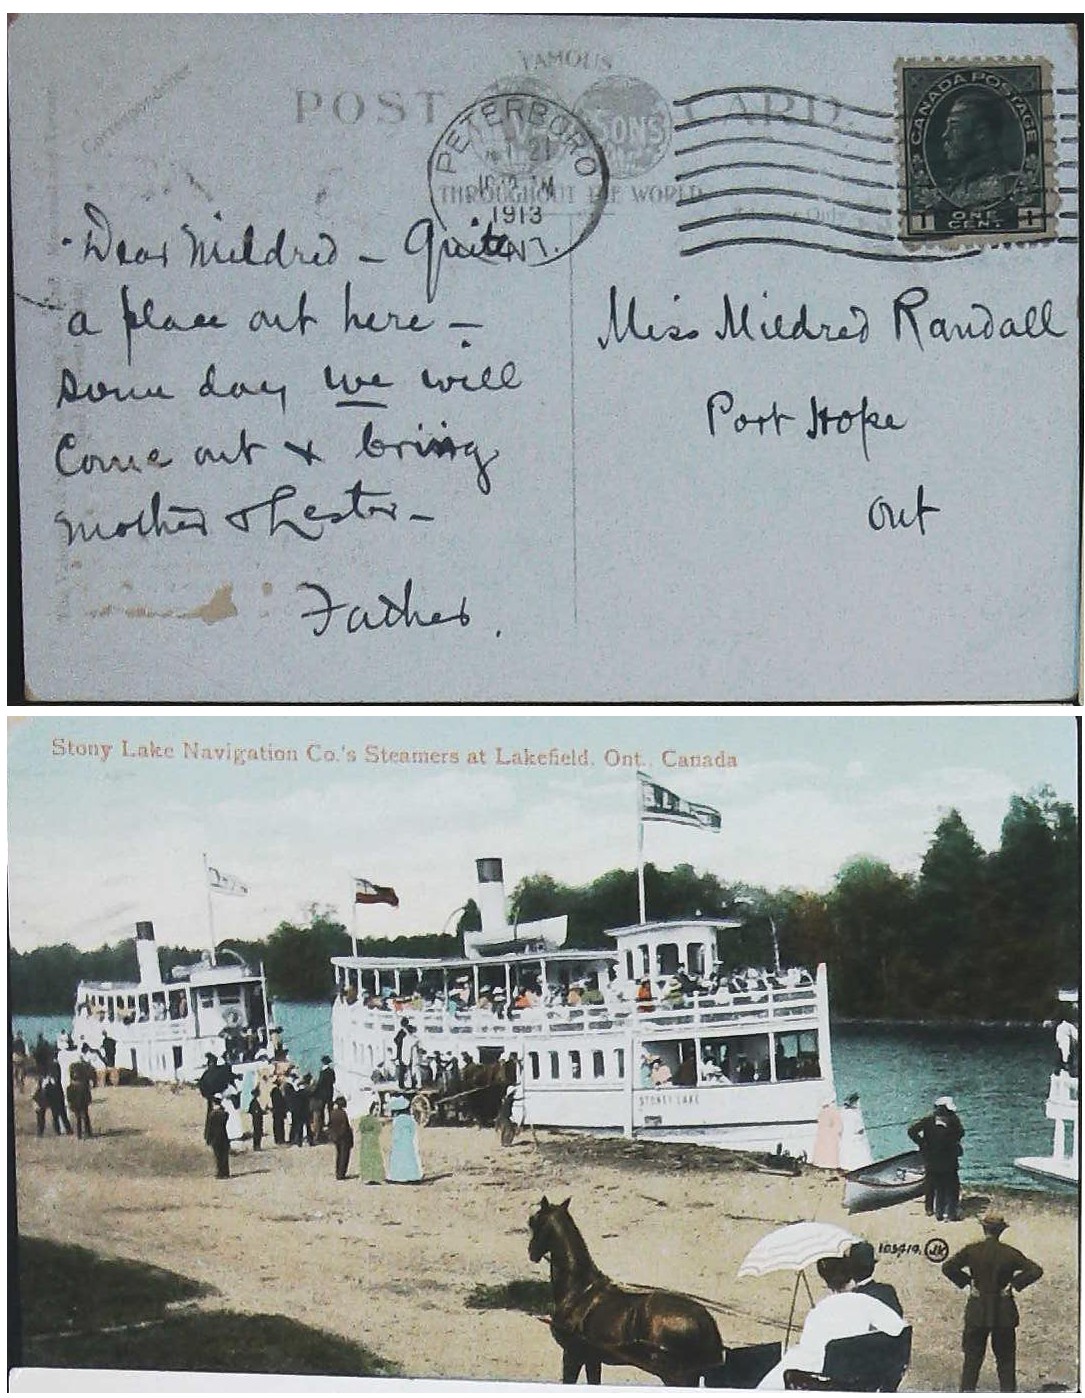 Correspondence
FAMOUS
POST CARD
SONS
THROUGHOUT THE WORLD
PETERBORO
21
1913
ONT.
CANADA POSTAGE
1 ONE 1
CENT.
Dear Mildred – Quite
a place out here –
some day we will
come out & bring
Mother & Lester –
Father.
Miss Mildred Randall
Port Hope
Ont
Stony Lake Navigation Co.'s Steamers at Lakefield, Ont., Canada
STONEY LAKE
103,419. JV